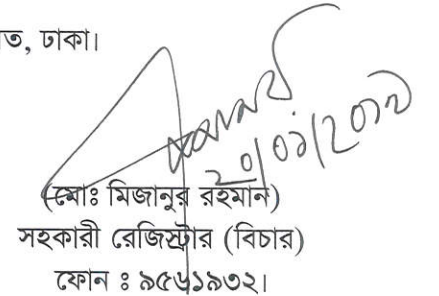 ত, ঢাকা।
২০/০১/২০১৯
(মোঃ মিজানুর রহমান)
সহকারী রেজিস্ট্রার (বিচার)
ফোন ঃ ৯৫৬১৯৩২।